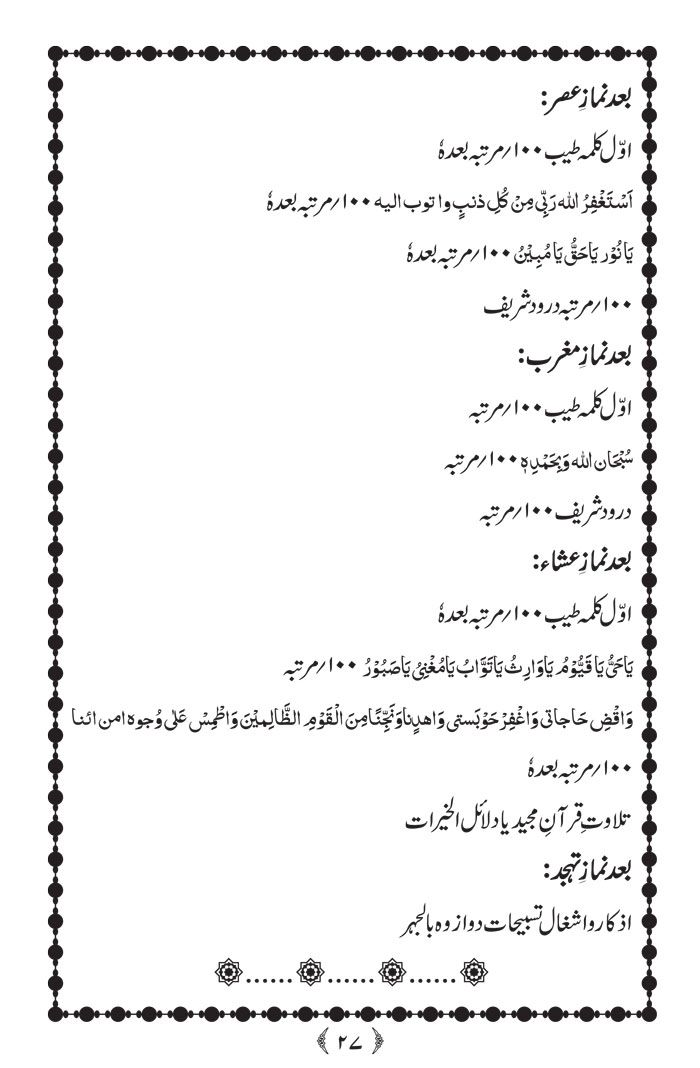 بعد نمازِ عصر:
اوّل کلمہ طیب ۱۰۰؍مرتبہ بعدہٗ
اَسْتَغْفِرُ اللہ رَبِّی مِنْ کُلِ ذنبٍ وا توب الیہ ۱۰۰؍مرتبہ بعدہٗ
یَا نُوْر یَاحَقُّ یَا مُبِیْنُ ۱۰۰؍مرتبہ بعدہٗ
۱۰۰؍مرتبہ درود شریف
بعد نمازِ مغرب:
اوّل کلمہ طیب ۱۰۰؍مرتبہ
سُبْحَان اللہ وَبِحَمْدِہٖ ۱۰۰؍مرتبہ
درود شریف ۱۰۰؍مرتبہ
بعد نمازِ عشاء:
اوّل کلمہ طیب ۱۰۰؍مرتبہ بعدہٗ
یَاحَیُّ یَا قَیُّوْمُ یَاوَارِثُ یَاتَوَّابُ یَامُغْنِیُ یَاصَبُوْرُ ۱۰۰؍مرتبہ
وَاقْضِ حَاجاتی وَاغْفِرْ حَوْبَستی وَاھدِناوَنَجِّنَا مِنَ الْقَوْمِ الظَّالِمِیْنَ وَاطْمِسْ عَلٰی وُجوہ امن ائنا
۱۰۰؍مرتبہ بعدہٗ
تلاوتِ قرآنِ مجید یا دلائل الخیرات
بعد نمازِ تہجد:
اذکار و اشغال تسبیحات دوازوہ بالجہر
۲۷